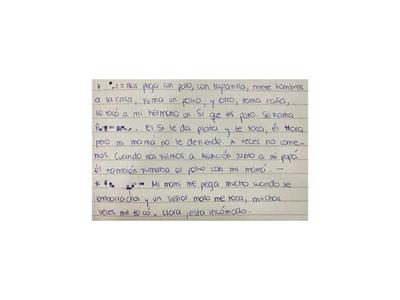 * = Nos pega con palo, con zapatilla, mete hombres
a la casa, fuma un polvo, y otro, toma caña,
le tocó a mi hermano un Sr que es puto. Se llama
R El Sr le da plata y le toca, él llora
pero mi mamá no le defiende. A veces no come-
mos. Cuando nos fuimos a Asunción junto a mi papá
él también fumaba el polvo con mi mamá. —
* = Mi mami me pega mucho cuando se
emborracha y un señor malo me toca, muchas
veces me tocó. Llora, está incómodo.